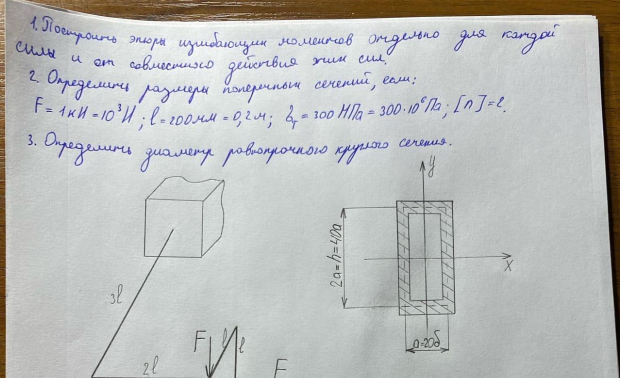 1. Построить эпюры изгибающих моментов отдельно для каждой
силы и от совместного действия этих сил.
2. Определить размеры поперечных сечений, если:
F = 1кН = 10³ Н ; l = 200мм = 0,2м ; = 300 МПа = 300·10⁶ Па ; [n] = 2.
3. Определить диаметр равнопрочного круглого сечения.
y
x
2a=h=40δ
a=20δ
3l
2l
F
l
l
F